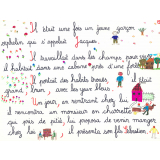 Il était une fois un jeune garçon
orphelin qui s'appelait Jacques.
Il travaillait dans les champs, pour
d'habitat dans une cabane près d'une forêt.
Il portait des habits troués, il était
grand, brun avec les yeux bleus.
Un jour, en rentrant chez lui
il rencontra un monsieur en
qui, près du petit, lui proposa de venir manger
chez lui et présenta son fils Sébastien